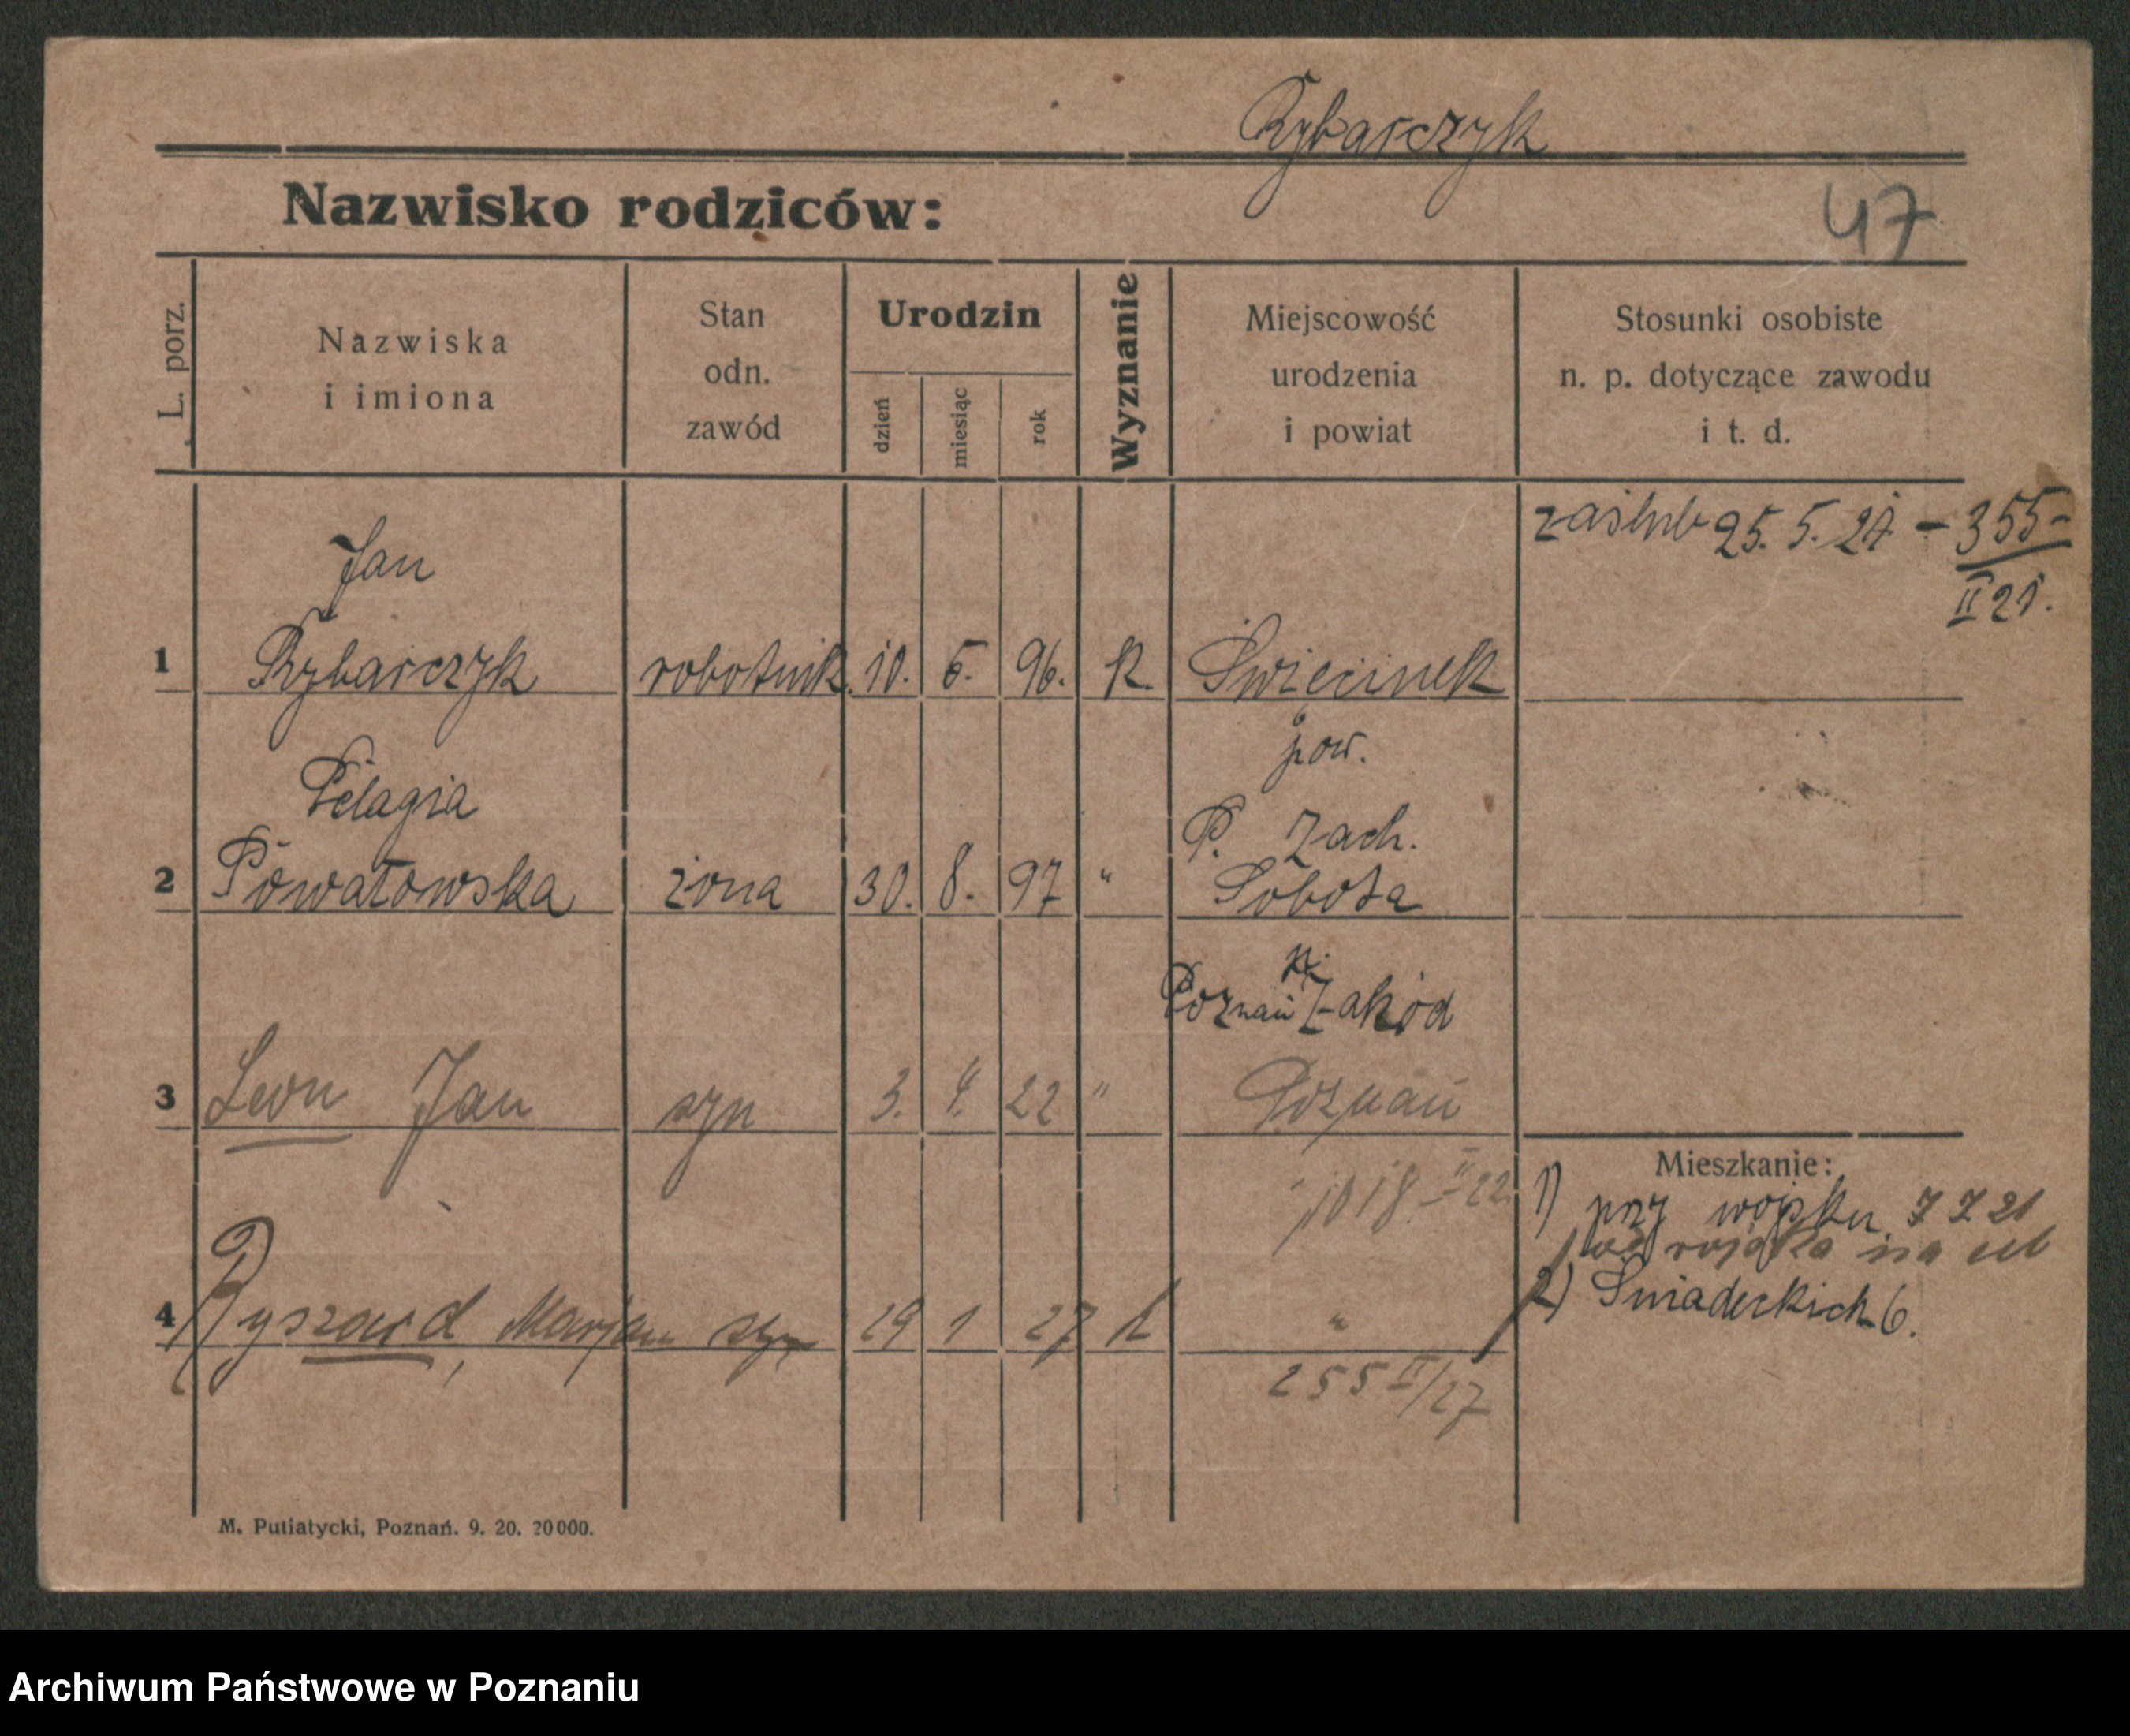 Rybarczyk
Nazwisko rodziców:
47
L. porz.
Nazwiska
i imiona
Stan
odn.
zawód
Urodzin
dzień
miesiąc
rok
Wyznanie
Miejscowość
urodzenia
i powiat
Stosunki osobiste
n. p. dotyczące zawodu
i t. d.
zaślub 25. 5. 21 – 355 –
II 21.
Jan
1 Rybarczyk robotnik. 10. 5. 96. K. Święcinek
pow.
Pelagia
P. Zach.
2 Powałowska żona 30. 8. 97 " Sobota
Poznań Zachód
3 Leon Jan syn 3. 4. 22 " Poznań
1018 II 22.
Mieszkanie:
1) przy wojsku 7 7 21
2) Śniadeckich 6.
4 Ryszard, Marjan syn 29 1 27 k "
255 II/27
M. Putiatycki, Poznań. 9. 20. 20000.
Archiwum Państwowe w Poznaniu